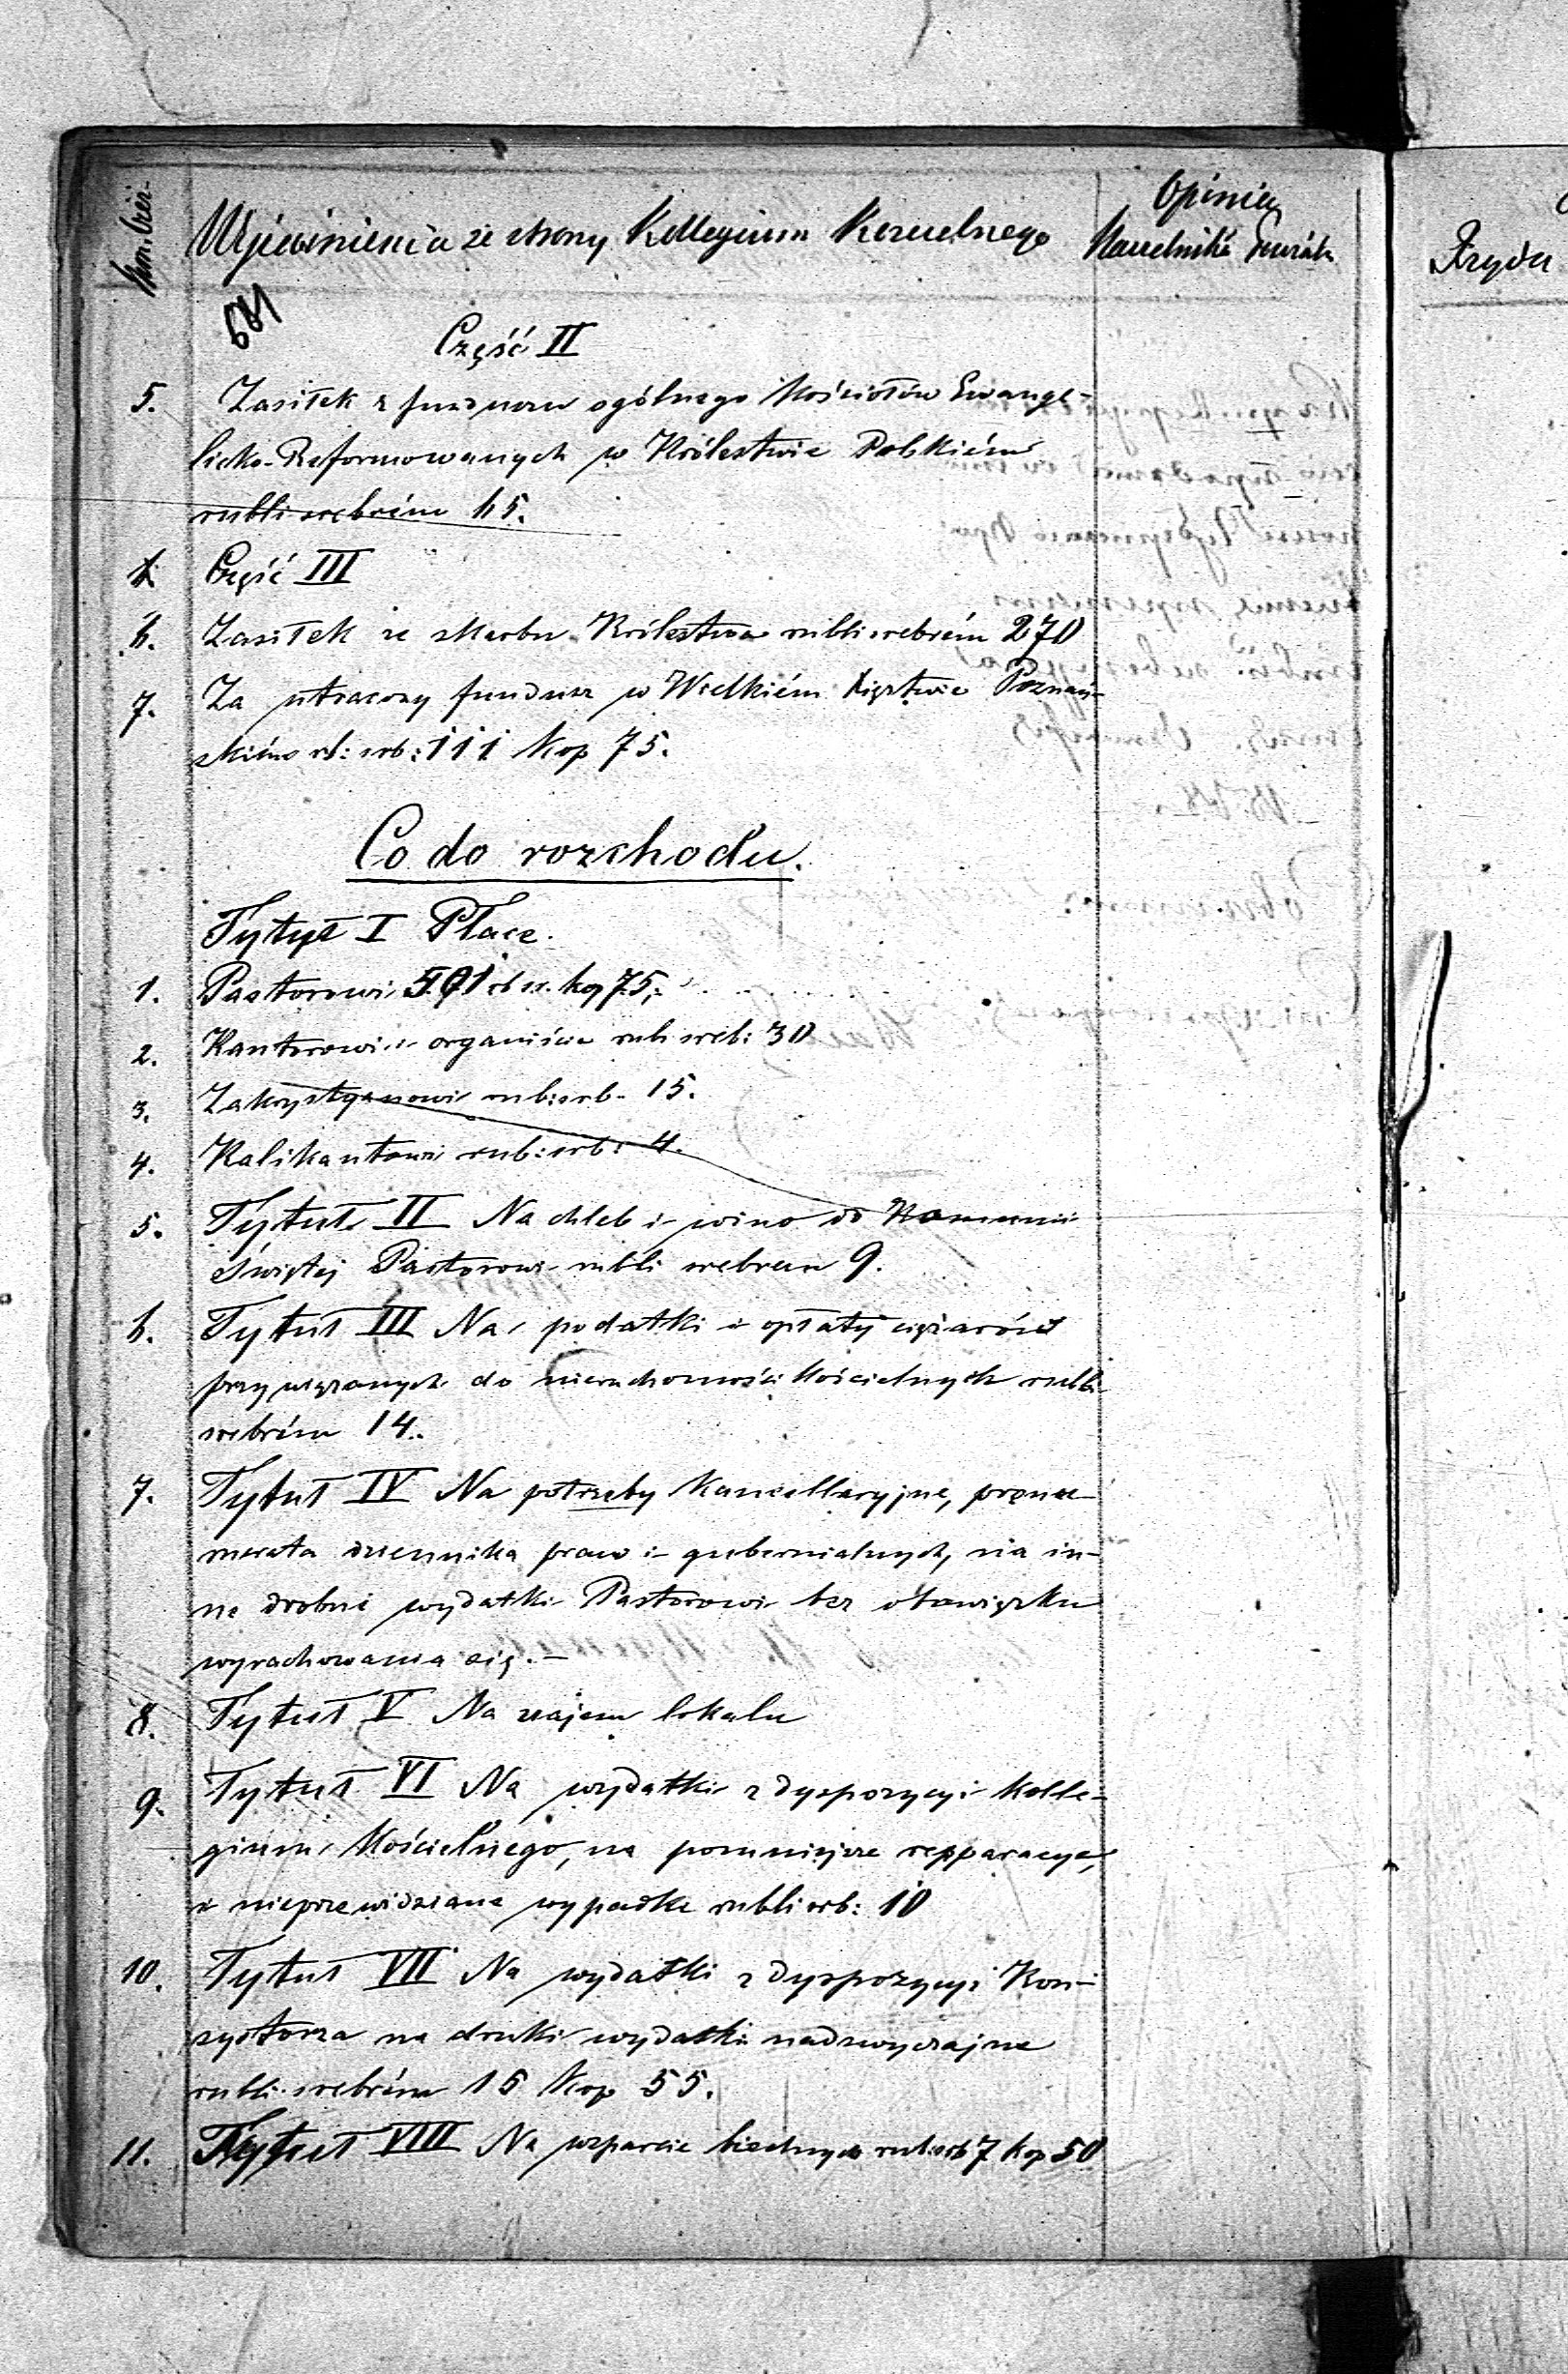 Num. bież.
Wyjaśnienia ze strony Kollegium Kościelnego
Opinia
Naczelnika Powiatu
Część II
5. Zasiłek z funduszu ogólnego Kościołów Ewange-
licko-Reformowanych w Królestwie Polskiém
rubli srebrém 65.
Część III
6. Zasiłek ze skarbu Królestwa rubli srebrém 270
7. Za utracony fundusz w Wielkiém Księstwie Poznań-
skiém rb: srb: 111 Kop 75.
Co do rozchodu.
Tytuł I Płace.
1. Pastorowi 501 rb sr. kop 75.
2. Kantorowi i organiście rub sreb: 30
3. Zakrystyanowi rub: srb. 15.
4. Kalikantowi rub: srb: 4.
5. Tytuł II Na chleb i wino do Kommunii
Świętej Pastorowi rubli srebrem 9.
6. Tytuł III Na podatki i opłaty ciężarów
przywiązanych do nieruchomości Kościelnych rubli
srebrém 14.
7. Tytuł IV Na potrzeby Kancellaryjne, prenu-
merata dziennika praw i gubernialnych, na in-
ne drobne wydatki Pastorowi bez obowiązku
wyrachowania się.-
8. Tytuł V Na najem lokalu
9. Tytuł VI Na wydatki z dyspozycyi Kolle-
gium Kościelnego, na pomniejsze repparacye,
i nieprzewidziane wypadki rubli srb: 10
10. Tytuł VII Na wydatki z dyspozycyi Kon-
systorza na druki wydatki nadzwyczajne
rubli srebrém 15 Kop 55.
11. Tytuł VIII Na wsparcie biednych rub: srb 7 kop 50